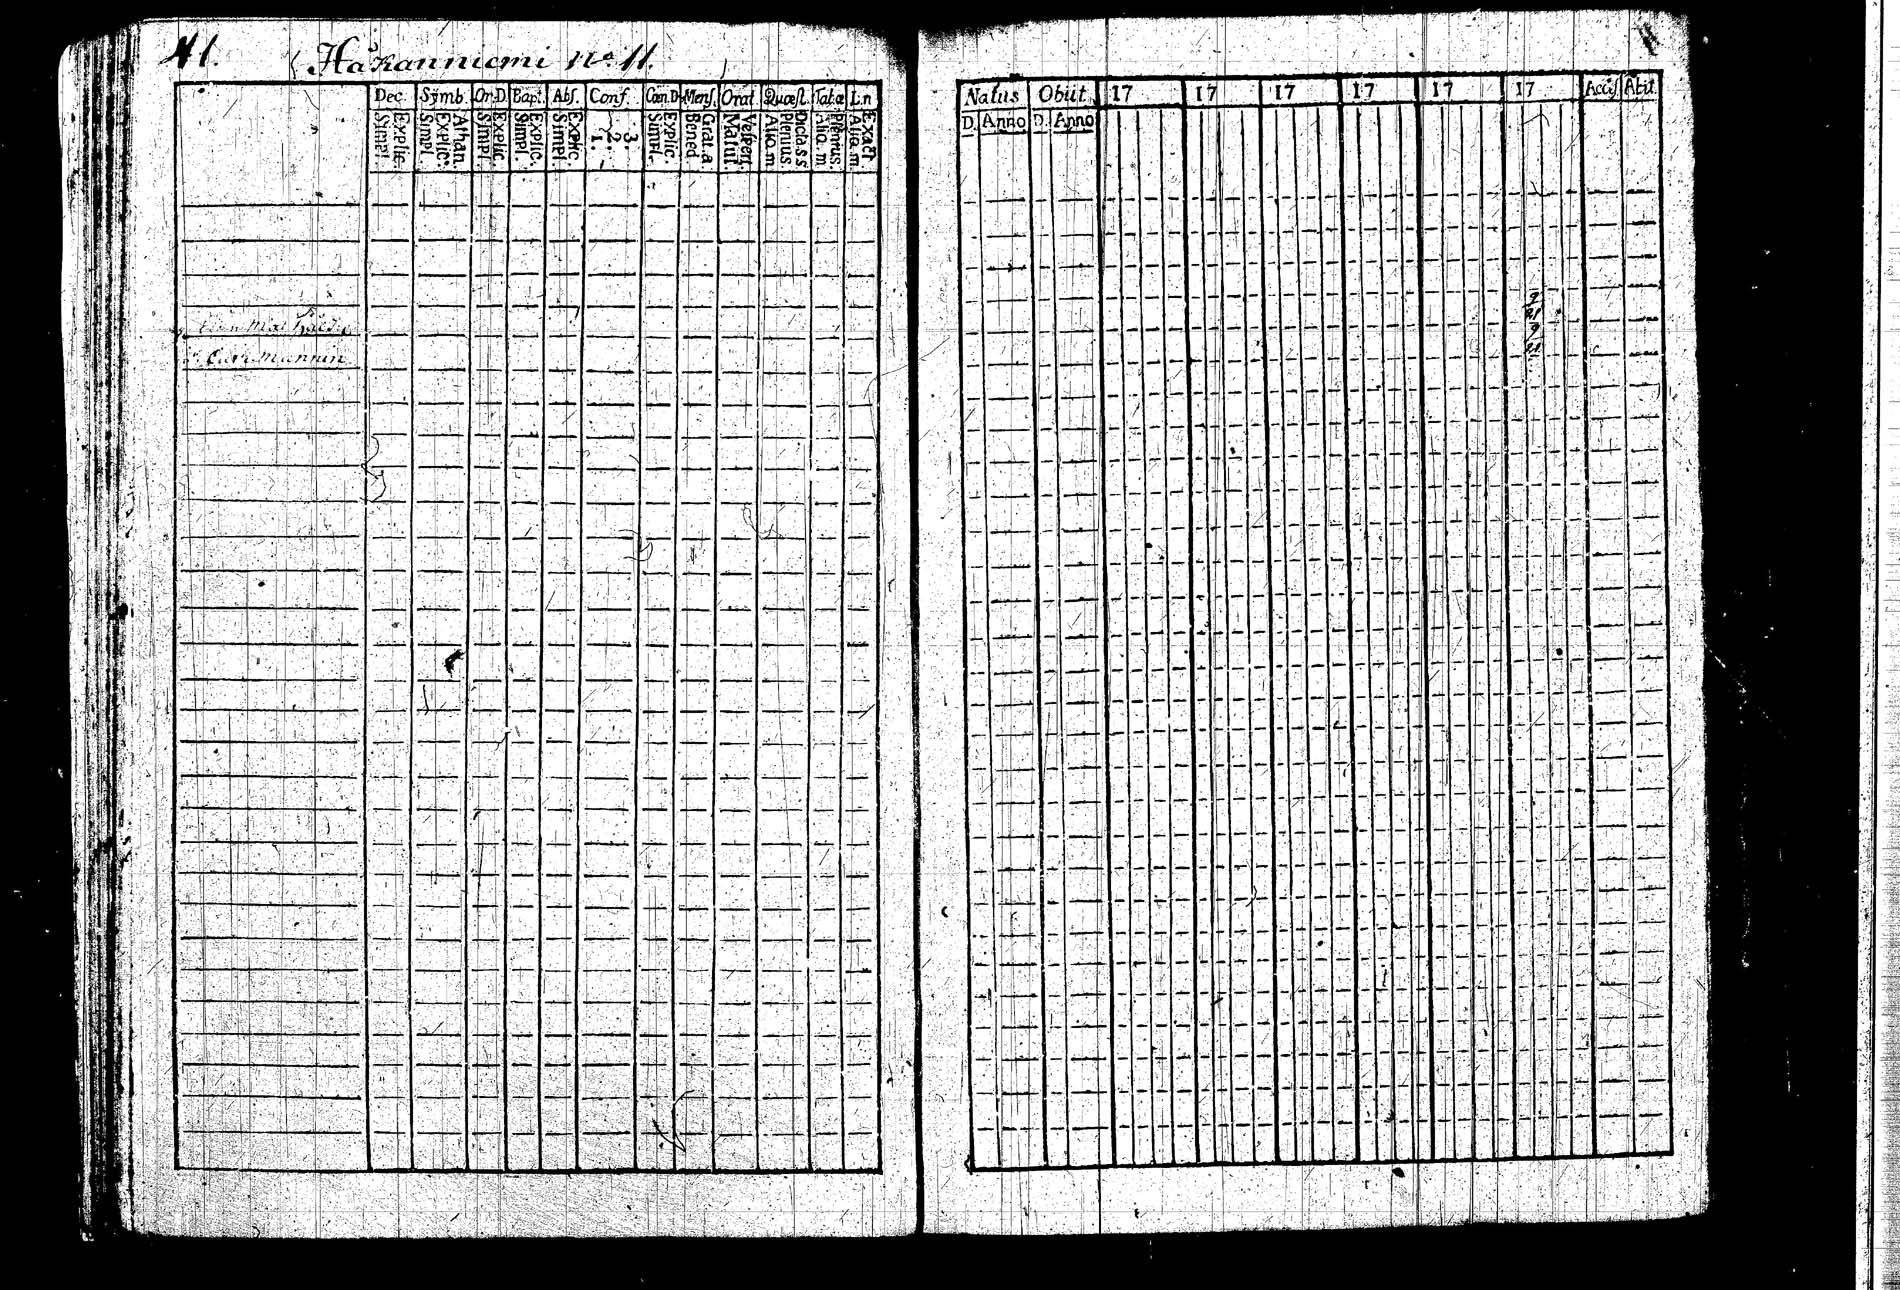 41. Håkanniemi No 11.
Dec. Symb. Or.D. Bapt. Abs. Conf. Cœn.D. Mens. Orat. Quæst. Tabæ L.n
Explic. Simpl. Athan. Explic. Simpl. Explic. Simpl. Explic. Simpl. Explic. Simpl. 3. 2. 1. Explic. Simpl. Grat.a. Bened Vesper. Matut. Dicta.s s Plenius. Alio.m Plenius. Alio.m Exact Alio.m
Natus Obiit 17 17 17 17 17 17 Acces Abit
D. Anno D. Anno
Mannin
9
21
9
21